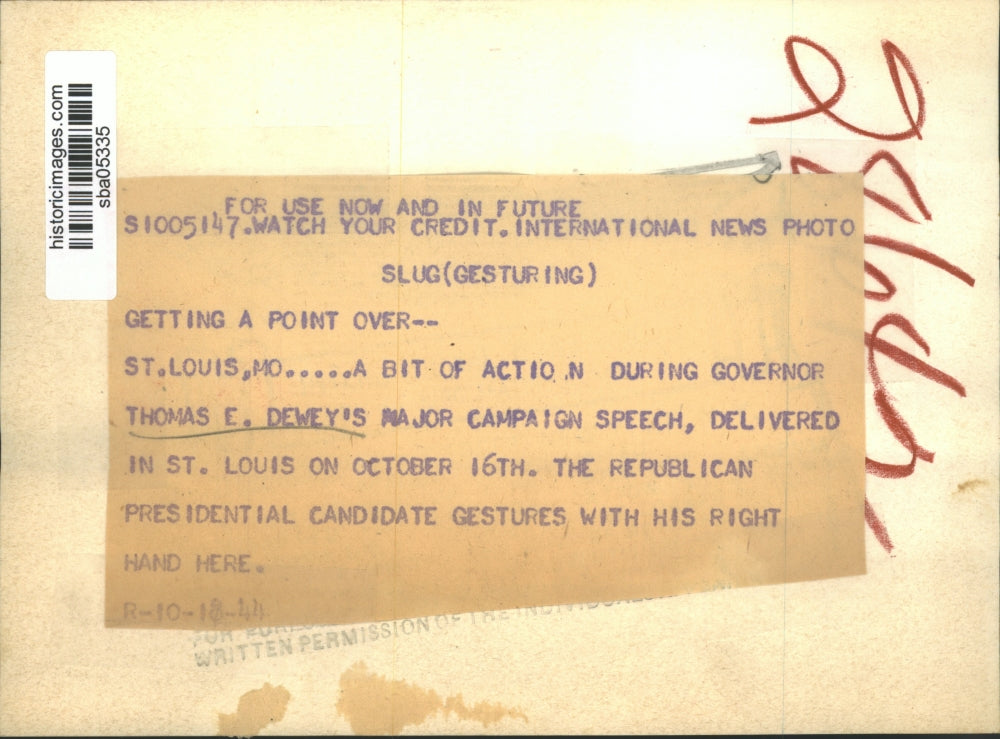 historicimages.com
sba05335
FOR USE NOW AND IN FUTURE
S1005147.WATCH YOUR CREDIT.INTERNATIONAL NEWS PHOTO
SLUG(GESTURING)
GETTING A POINT OVER--
ST.LOUIS,MO.....A BIT OF ACTIO N DURING GOVERNOR
THOMAS E. DEWEY'S MAJOR CAMPAIGN SPEECH, DELIVERED
IN ST. LOUIS ON OCTOBER 16TH. THE REPUBLICAN
PRESIDENTIAL CANDIDATE GESTURES WITH HIS RIGHT
HAND HERE.
R-10-18-44
FOR
WRITTEN PERMISSION OF THE